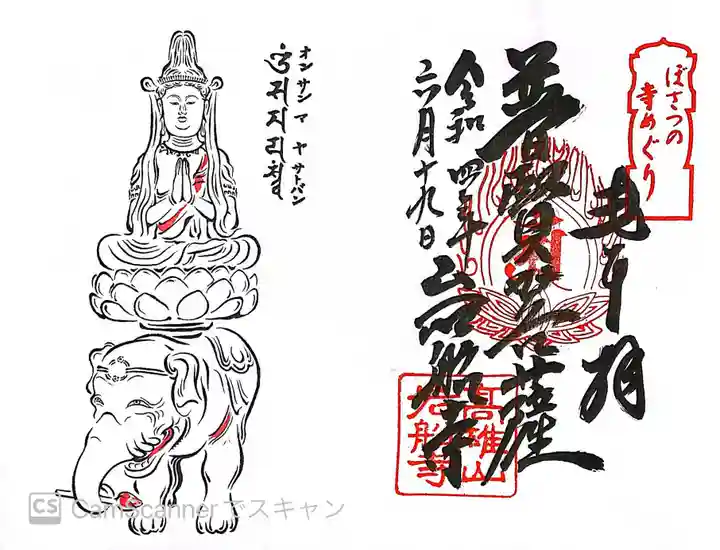 ぼさつの
寺めぐり
奉拝
普賢菩薩
令和四年
六月十九日
岩船寺
高雄山
岩船寺
オン サン マ ヤ サトバン
CS CamScannerでスキャン